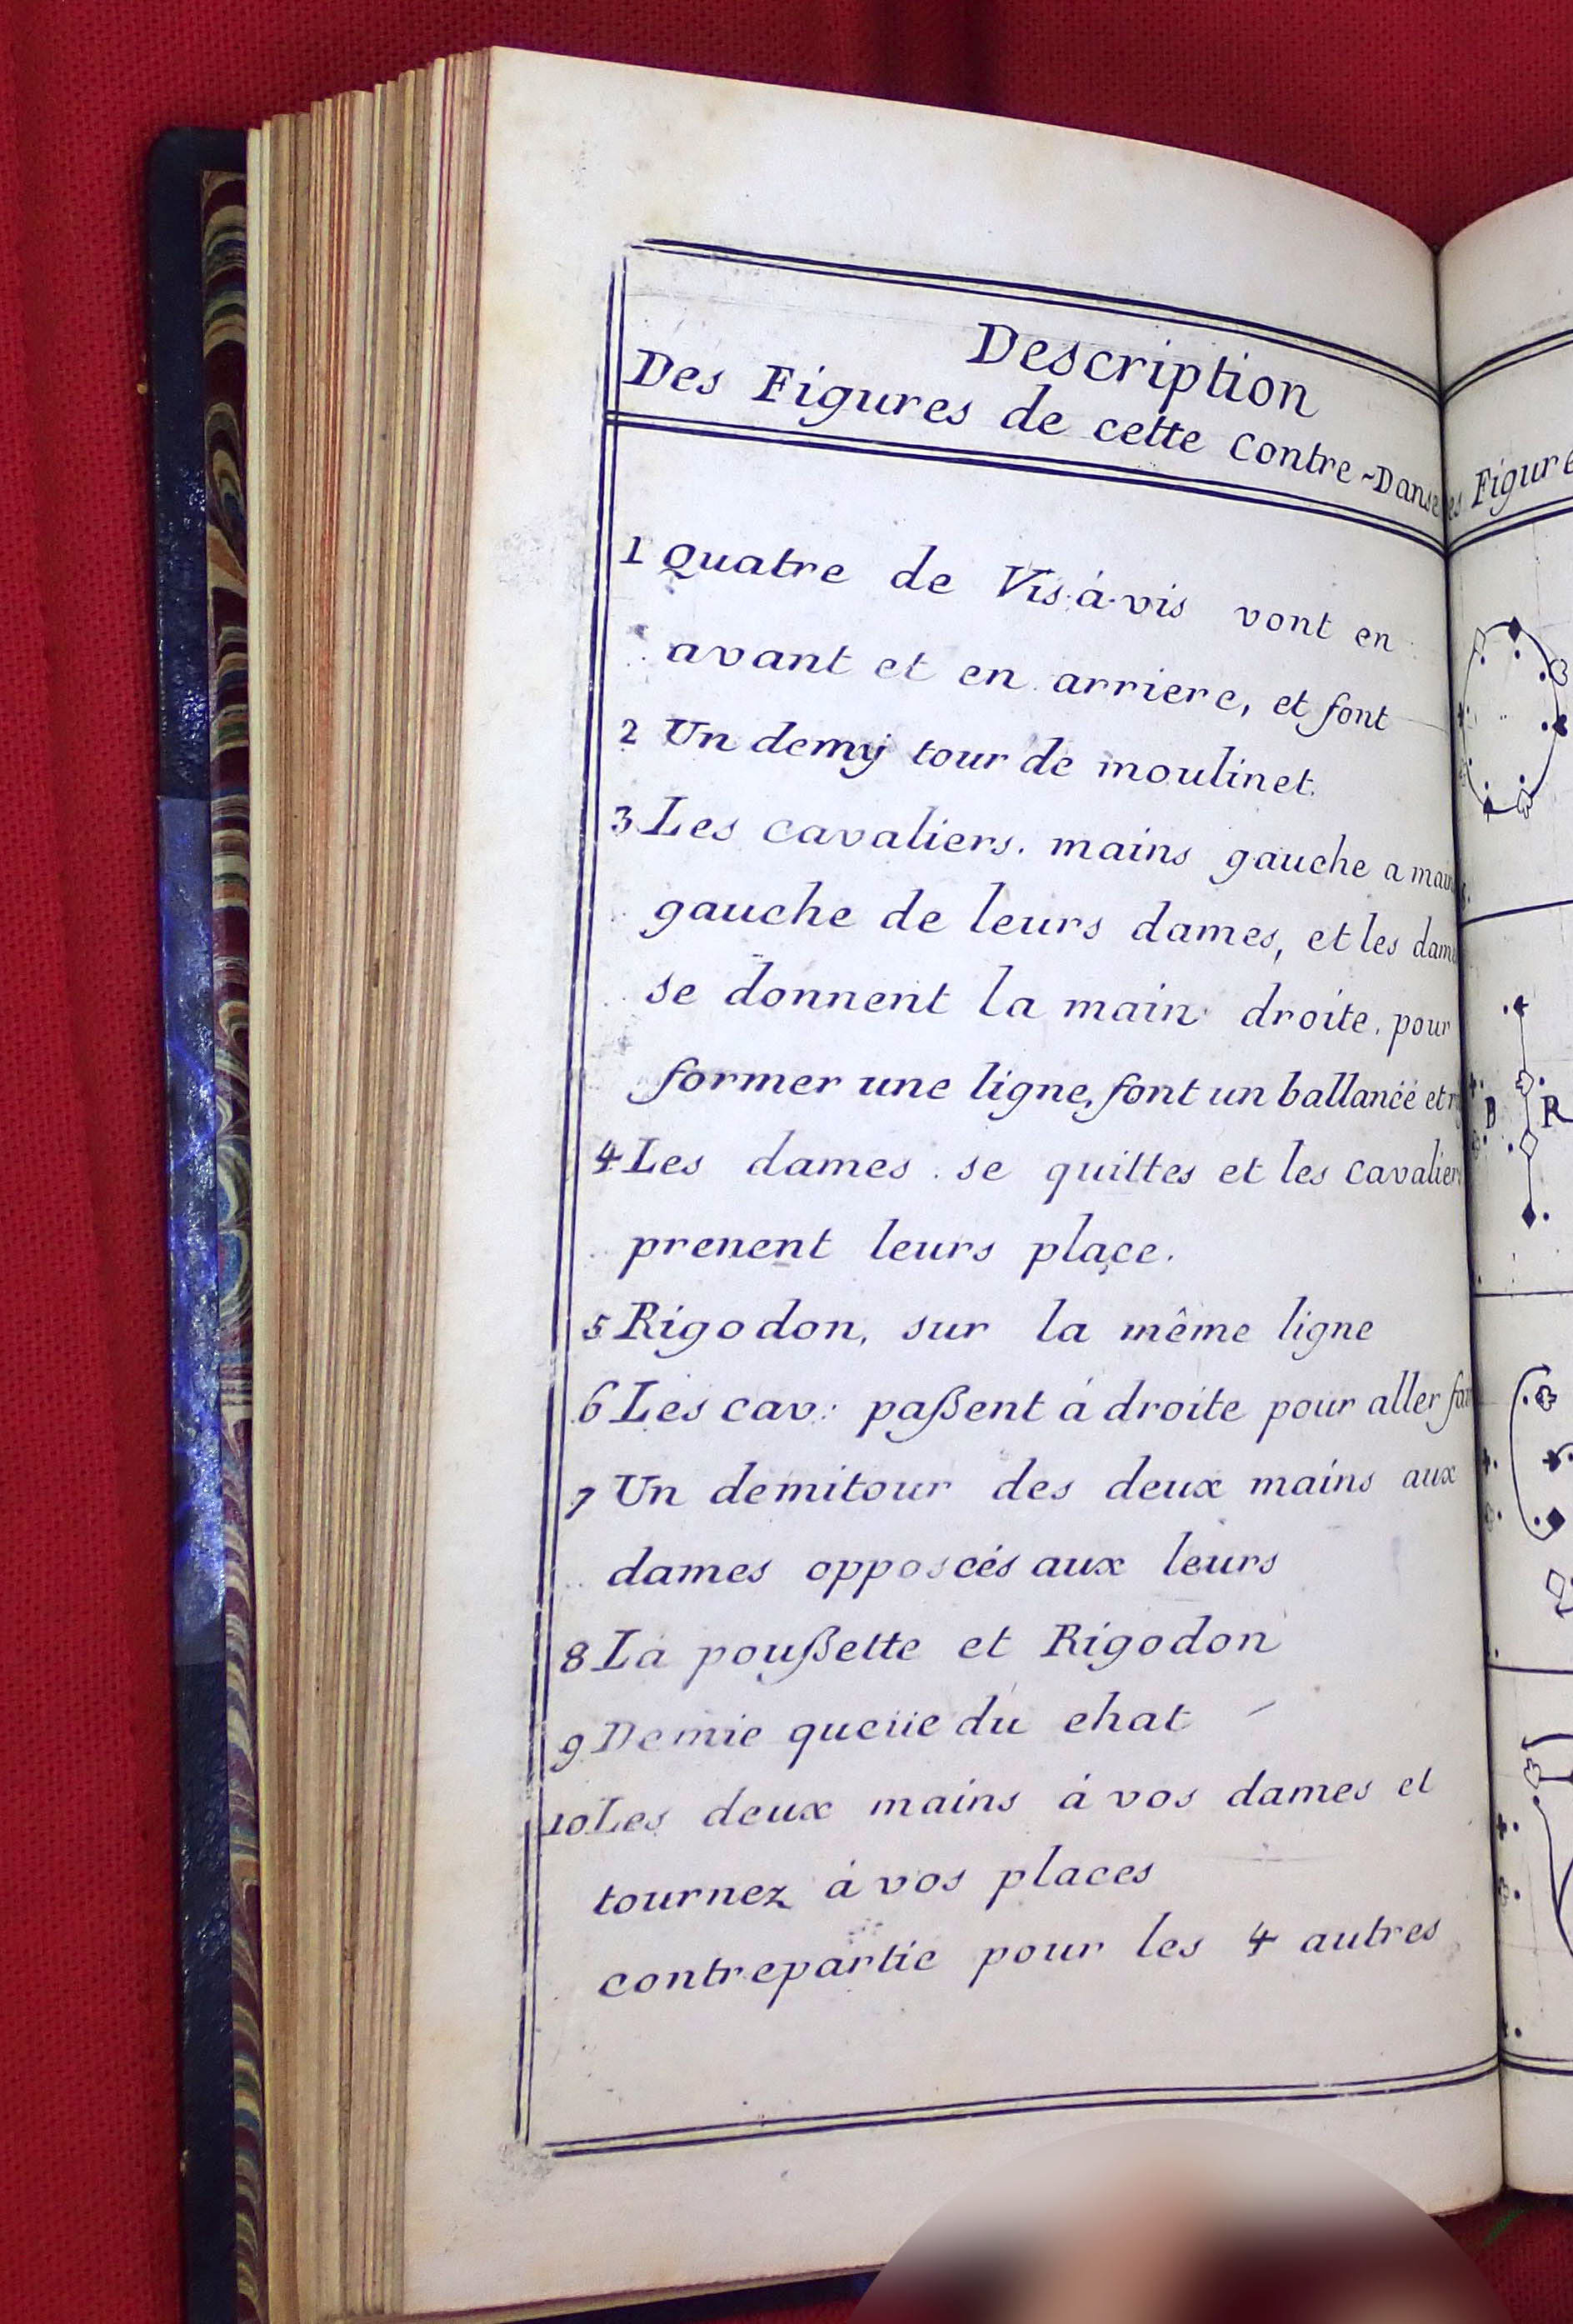 Description
Des Figures de cette Contre-Danse
1 Quatre de Vis-à-vis vont en
avant et en arriere, et font
2 Un demy tour de moulinet.
3 Les cavaliers. mains gauche a main
gauche de leurs dames, et les dames
se donnent la main droite, pour
former une ligne, font un ballancé et
4 Les dames se quittes et les cavaliers
prenent leurs place.
5 Rigodon, sur la même ligne
6 Les cav: paßent á droite pour aller
7 Un demitour des deux mains aux
dames opposeés aux leurs
8 La poußette et Rigodon
9 Demie queüe du chat
10 Les deux mains á vos dames et
tournez á vos places
contrepartie pour les 4 autres
es Figure
B R